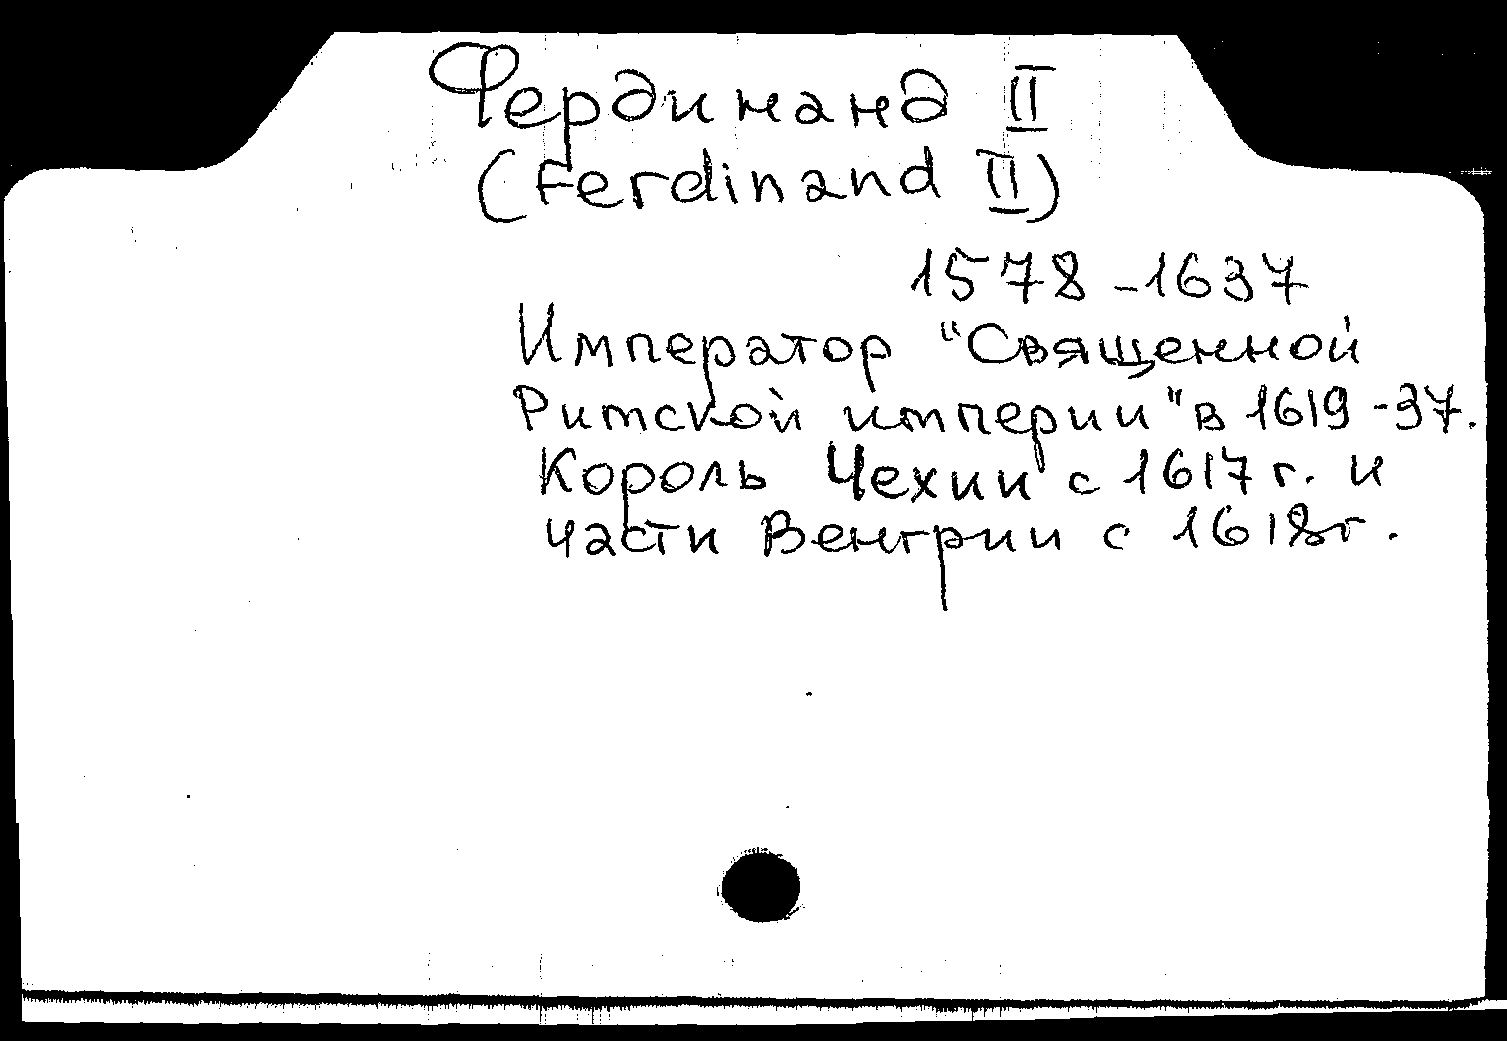 Фердинанд II
(Ferdinand II)
1578-1637
Император "Священной
Римской империи" в 1619-37.
Король Чехии с 1617 г. и
части Венгрии с 1618 г.